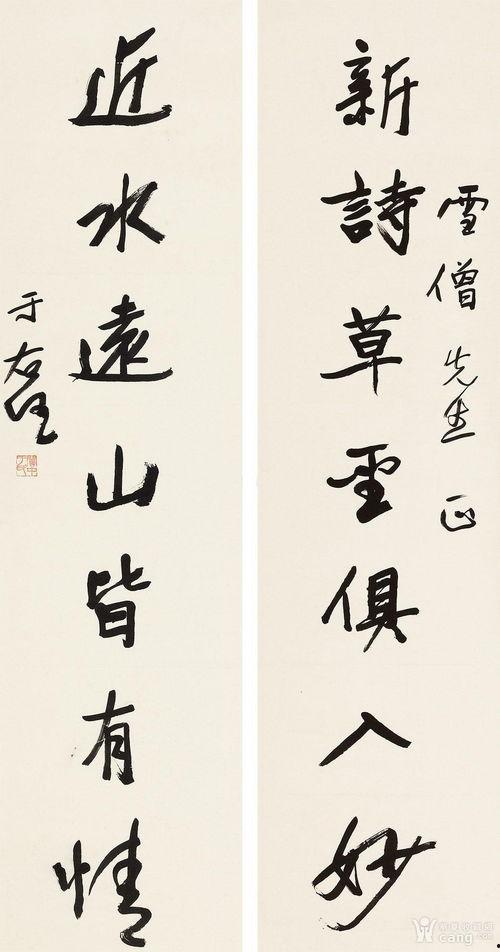 雪僧先生正
新詩草聖俱入妙
近水遠山皆有情
于右任
cang.com